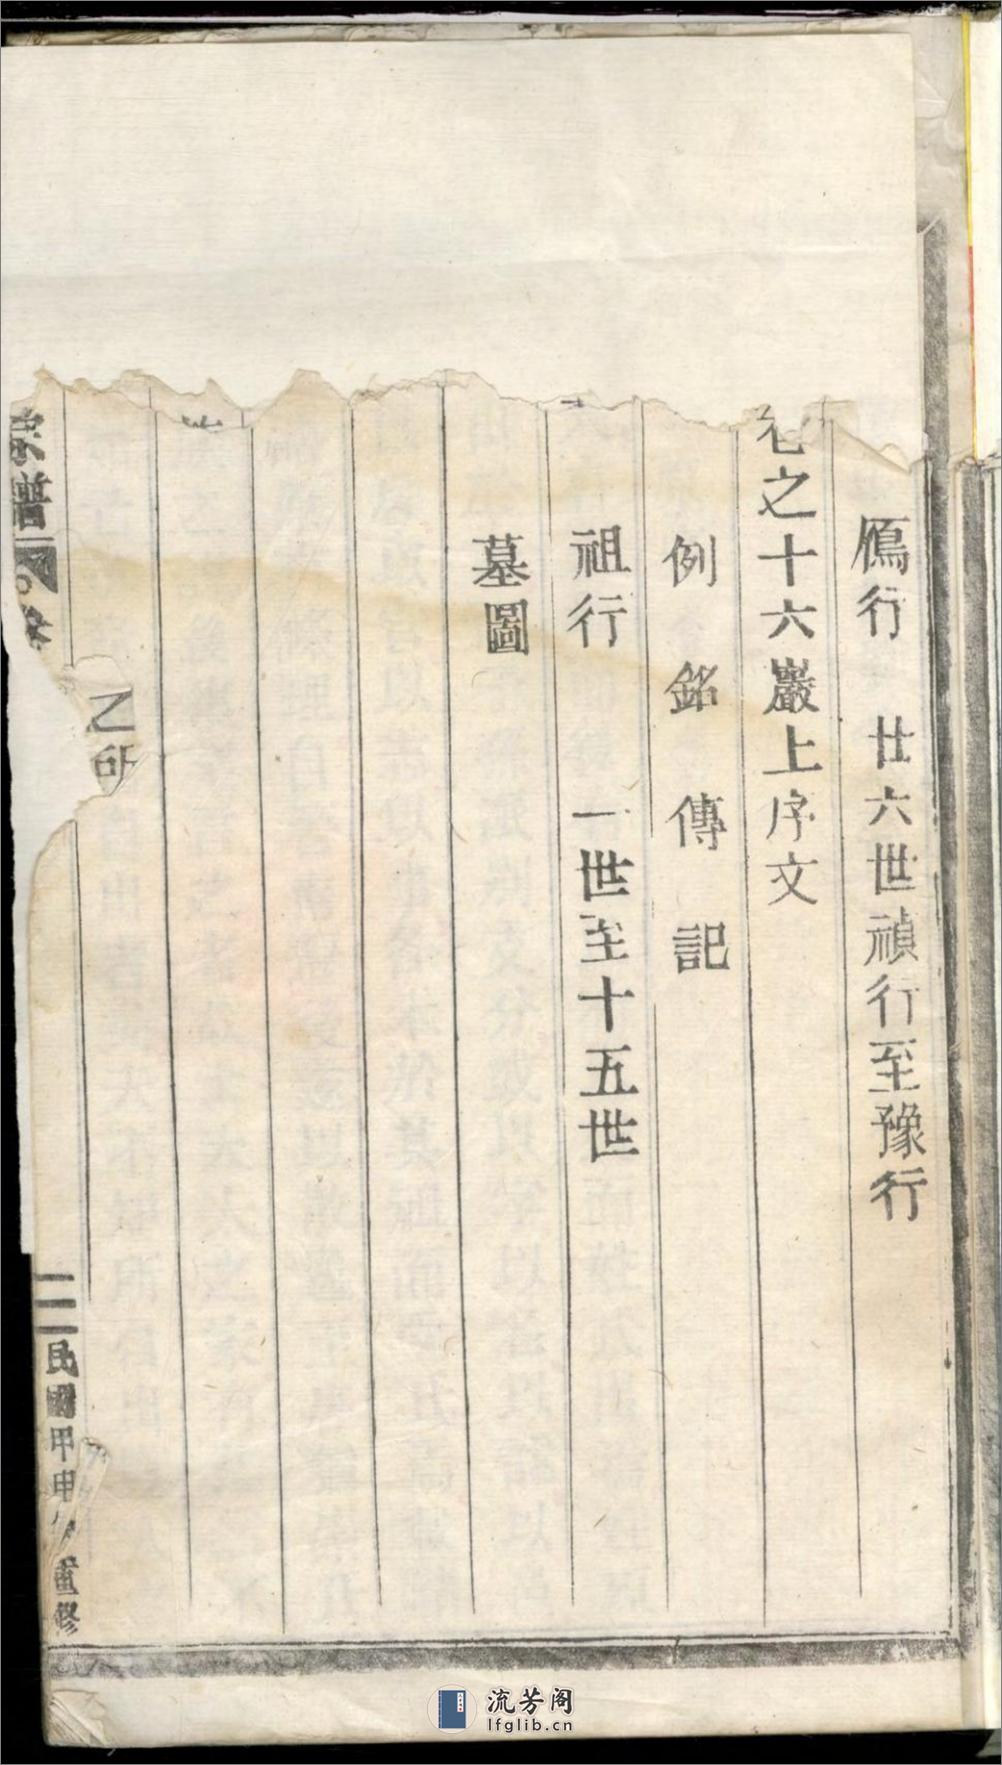 鴈行 廿六世禎行至豫行
卷之十六巖上序文
例銘傳記
祖行 一世至十五世
墓圖
宗譜
二
民國甲申 重修
流芳阁
lfglib.cn